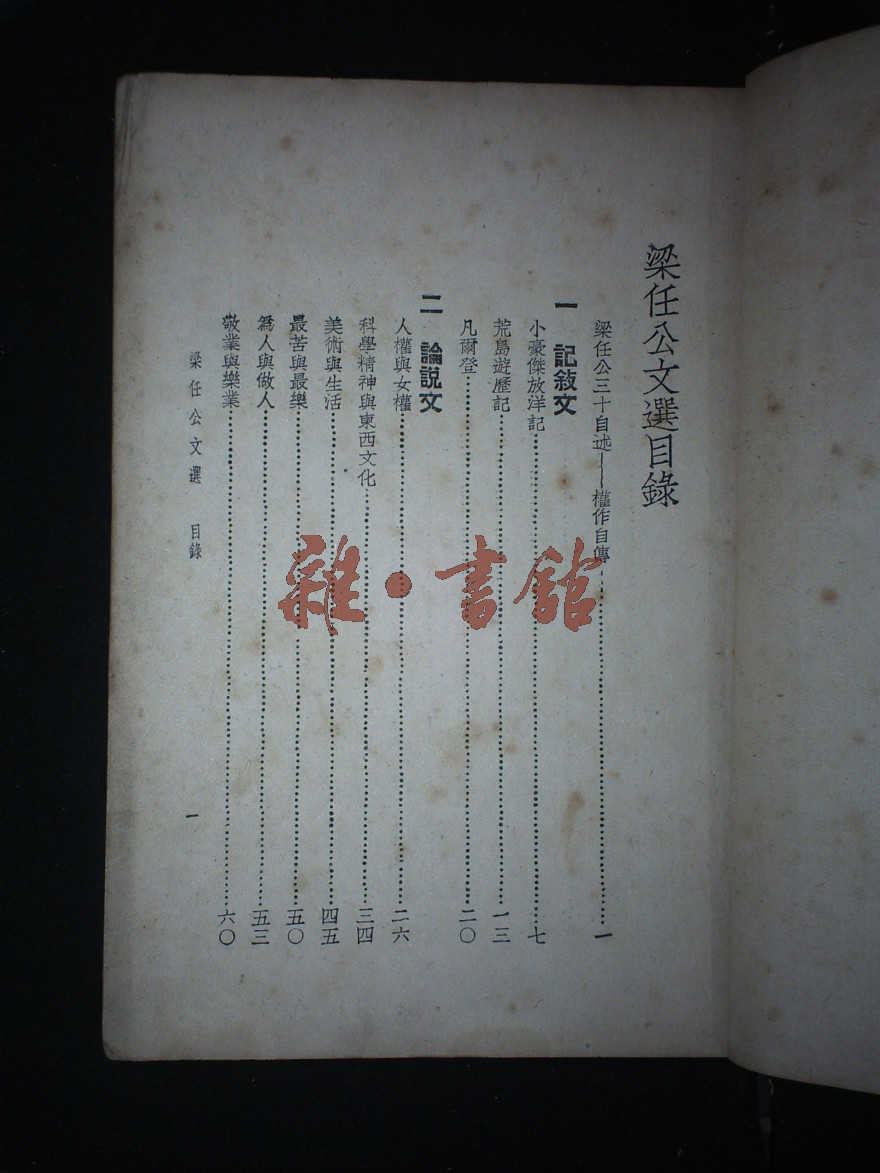 梁任公文選目錄
梁任公三十自述——權作自傳……一
一 記敍文
小豪傑放洋記……七
荒島遊歷記……一三
凡爾登……二〇
二 論説文
人權與女權……二六
科學精神與東西文化……三四
美術與生活……四五
最苦與最樂……五〇
爲人與做人……五三
敬業與樂業……六〇
梁任公文選 目錄 一
雜·書館